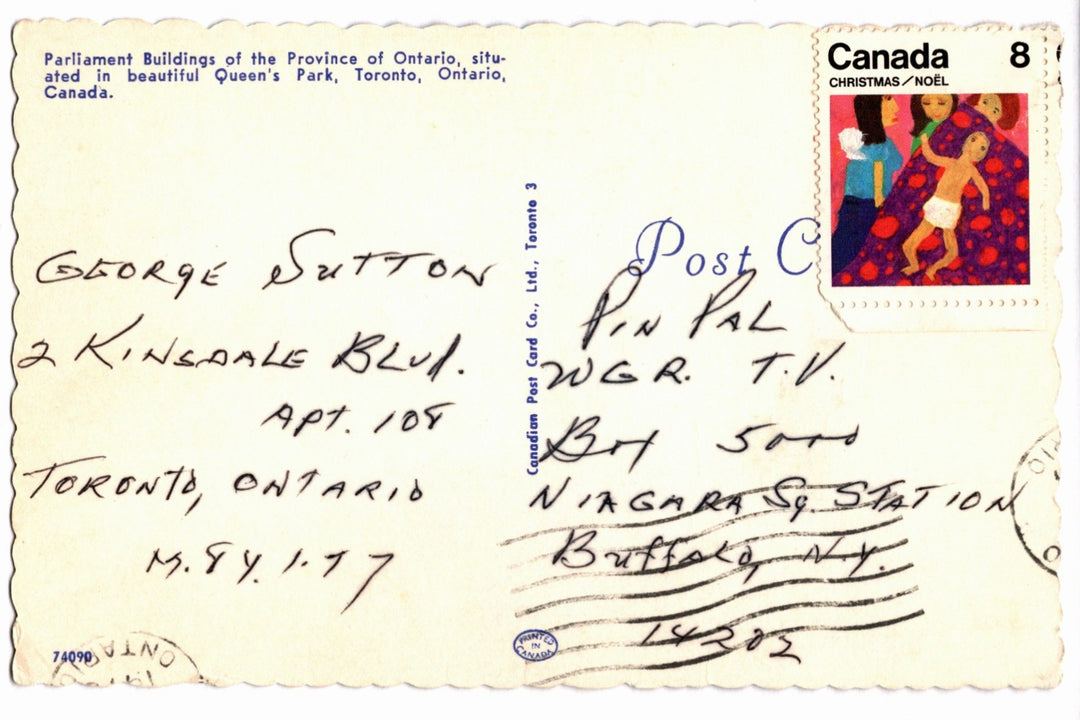 Parliament Buildings of the Province of Ontario, situ-
ated in beautiful Queen's Park, Toronto, Ontario,
Canada.
Canada 8
CHRISTMAS/NOËL
Post C
GEORGE SUTTON
2 KINSDALE BLVD.
APT. 108
TORONTO, ONTARIO
M.8Y.1.T7
Canadian Post Card Co., Ltd., Toronto 3
PIN PAL
WGR. T.V.
Box 5000
NIAGARA Sq. STATION
Buffalo, N.Y.
14202
74090
PRINTED
IN
CANADA
ONTA